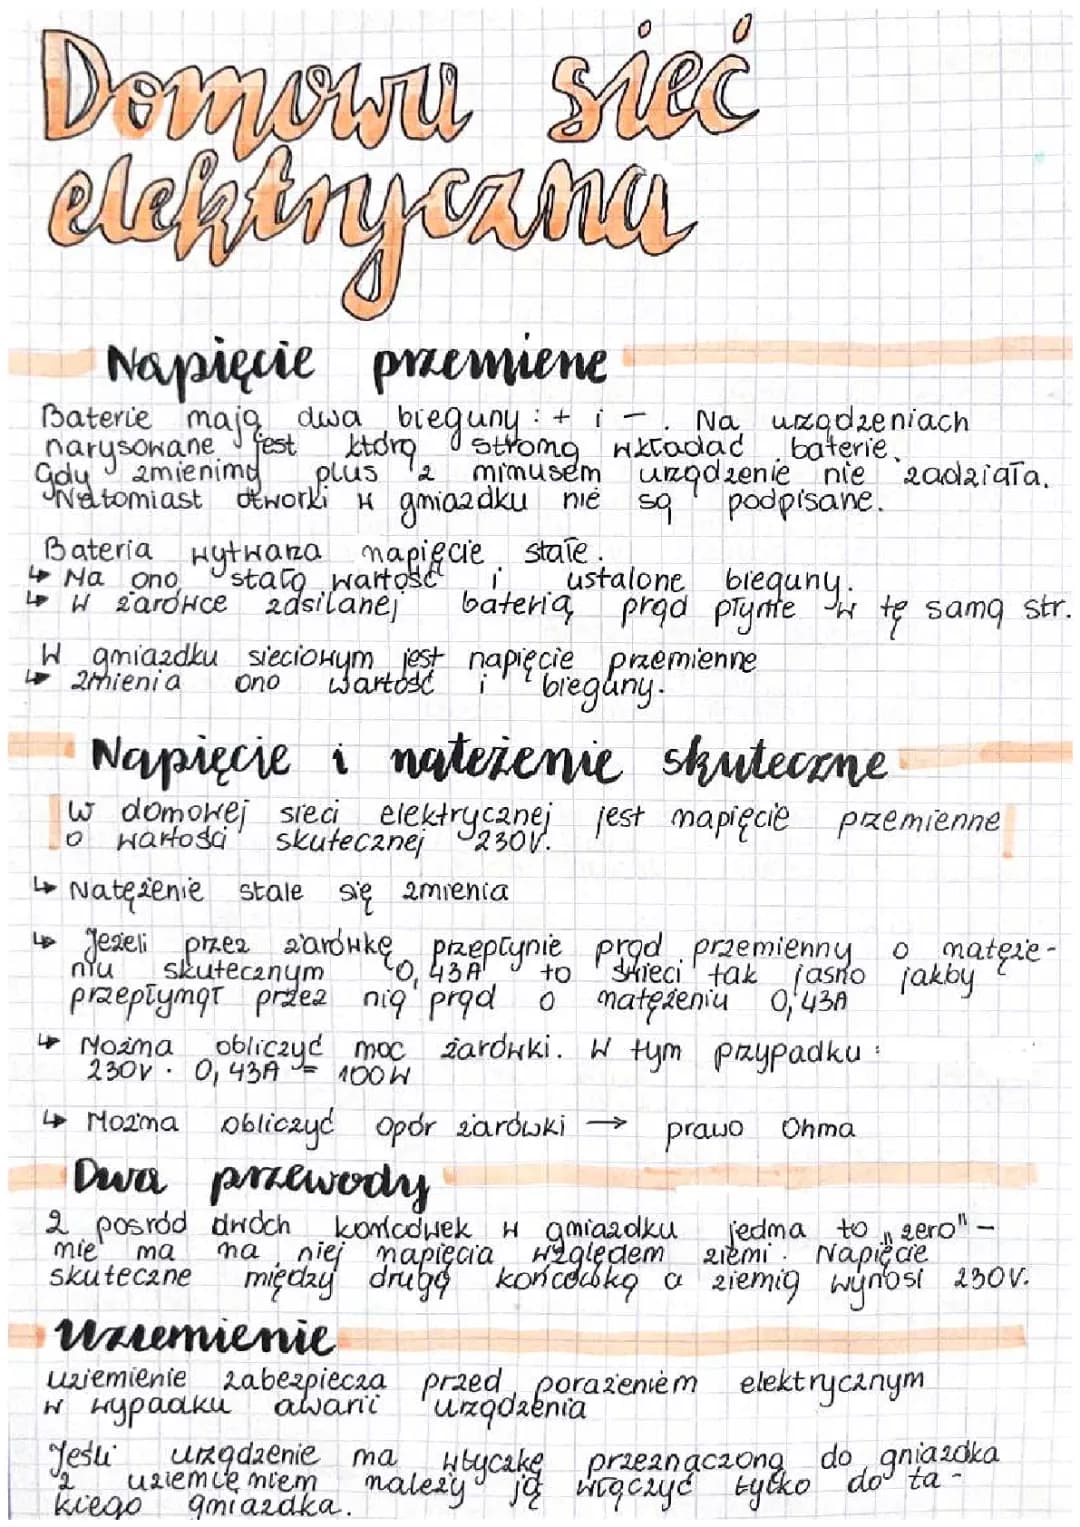 Domowa sieć
elektryczna
Napięcie przemiene
Baterie mają dwa bieguny: + i -. Na urządzeniach
narysowane jest którą stroną wkładać baterie.
Gdy zmienimy plus z minusem urządzenie nie zadziała.
Natomiast otworki w gniazdku nie są podpisane.
Bateria wytwarza napięcie stałe.
↳ Ma ono stałą wartość i ustalone bieguny.
↳ W żarówce zasilanej baterią prąd płynie w tę samą str.
W gniazdku sieciowym jest napięcie przemienne
↳ zmienia ono wartość i bieguny.
Napięcie i natężenie skuteczne
W domowej sieci elektrycznej jest napięcie przemienne
o wartości skutecznej 230V.
↳ Natężenie stale się zmienia
↳ Jeżeli przez żarówkę przepłynie prąd przemienny o natęże-
niu skutecznym 0,43A to świeci tak jasno jakby
przepłynął przez nią prąd o natężeniu 0,43A
↳ Można obliczyć moc żarówki. W tym przypadku:
230V · 0,43A = 100W
↳ Można obliczyć opór żarówki → prawo Ohma
Dwa przewody
Z pośród dwóch końcówek w gniazdku jedna to „zero" -
nie ma na niej napięcia względem ziemi. Napięcie
skuteczne między drugą końcówką a ziemią wynosi 230V.
Uziemienie
uziemienie zabezpiecza przed porażeniem elektrycznym
w wypadku awarii urządzenia
Jeśli urządzenie ma wtyczkę przeznaczoną do gniazdka
z uziemieniem należy ją włączyć tylko do ta-
kiego gniazdka.